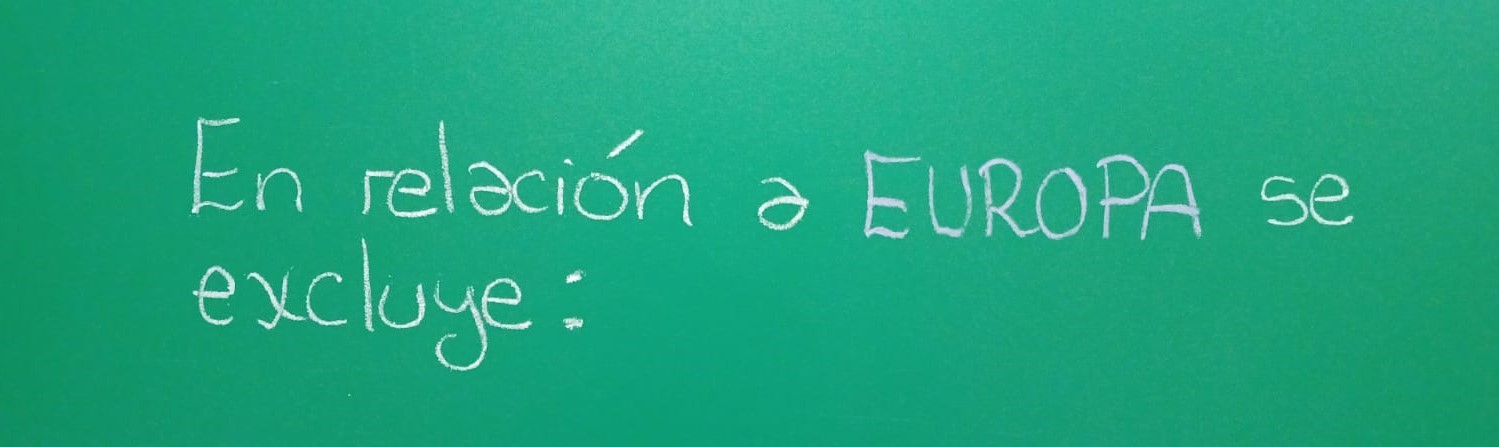 En relación a EUROPA se
excluye: